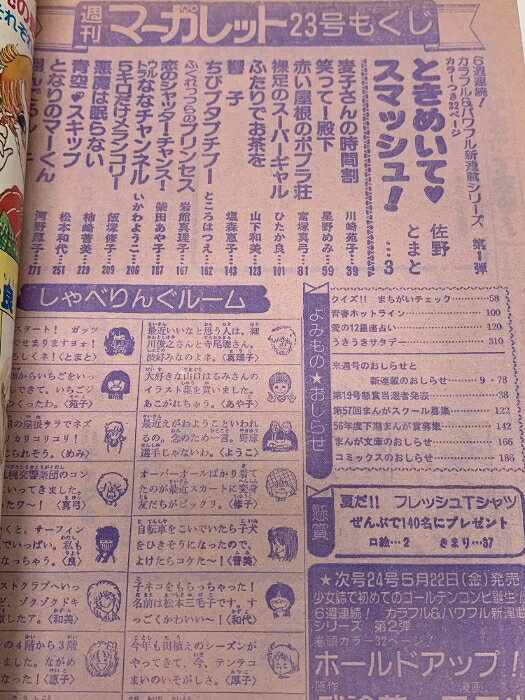 週刊マーガレット23号もくじ
6週連続!
カラフル&パワフル新連載シリーズ 第1弾
カラーつき32ページ
ときめいて♥スマッシュ! 佐野とまと…3
麦子さんの時間割 川崎苑子 39
笑って!殿下 星野めみ 59
赤い屋根のポプラ荘 富塚真弓 81
裸足のスーパーギャル ひたか良 101
ふたりでお茶を 山下和美 123
響子 塩森恵子 143
ちびプタプチブー ところはつえ 162
ふくれっつらのプリンセス 岩館真理子 167
恋のシャッターチャンス! 柴田あや子 187
ななチャンネル いかわようこ 206
5キロだけメランコリー 飯塚修子 209
悪魔は眠らない 柿崎普美 229
青空★スキップ 松本和代 251
となりのマーくん 河野厚子 271
しゃべりんぐルーム
スタート! ガッツ
でせまりますョォ!
ろしくネ!〈とまと〉
最近いいなと思う人は、細
川俊之さんと寺尾聰さん。
渋好みなのよネ。〈真理子〉
からいちごをいっ
んできて、いちごジ
つくったわ。〈苑子〉
大好きな山口はるみさんの
イラスト集を買いました。
あこがれちゃう。〈あや子〉
の屋根のウラでネズ
カリコリコリ!
られそう。〈めみ〉
最近えがわようこといわれ
るの。念のため一言。野球
選手じゃないわ。〈ようこ〉
交響楽団のコン
いってきました
たワ〜!〈真弓〉
オーバーオールばかり着て
たのが最近スカートに変身
友だちがビックリ。〈修子〉
くと、サーフィン
でいっぱい。私も
なっちゃう。〈良〉
自転車をこいでいたら子犬
をひきそうになったので、
よけたらコケた〜!〈普美〉
ストクラブへいっ
ど、ゾクゾクドキ
激したァ。〈和美〉
子ネコをもらっちゃった!
名前は松本三毛子です。す
っごくかわいい〜!〈和代〉
の4階から3階
ました。ながめ
なった!〈恵子〉
今年も田植えのシーズンが
やってきて、今、テンテコ
まいのいそがしさ。〈厚子〉
よみもの★おしらせ
クイズ!! まちがいチェック…58
青春ホットライン…100
愛の12星座占い…120
うきうきサタデー…310
来週号のおしらせと
新連載のおしらせ…9・78
第19号懸賞当選者発表…38
第57回まんがスクール募集…122
56年度下期まんが賞募集…142
まんが文庫のおしらせ…166
コミックスのおしらせ…186
懸賞
夏だ!! フレッシュTシャツ
ぜんぶで140名にプレゼント
口絵…2 きまり…37
★次号24号5月22日(金)発売
少女誌で初めてのゴールデンコンビ誕生!
6週連続! カラフル&パワフル新連載
シリーズ 第2弾
巻頭カラー32ページ!
ホールドアップ!